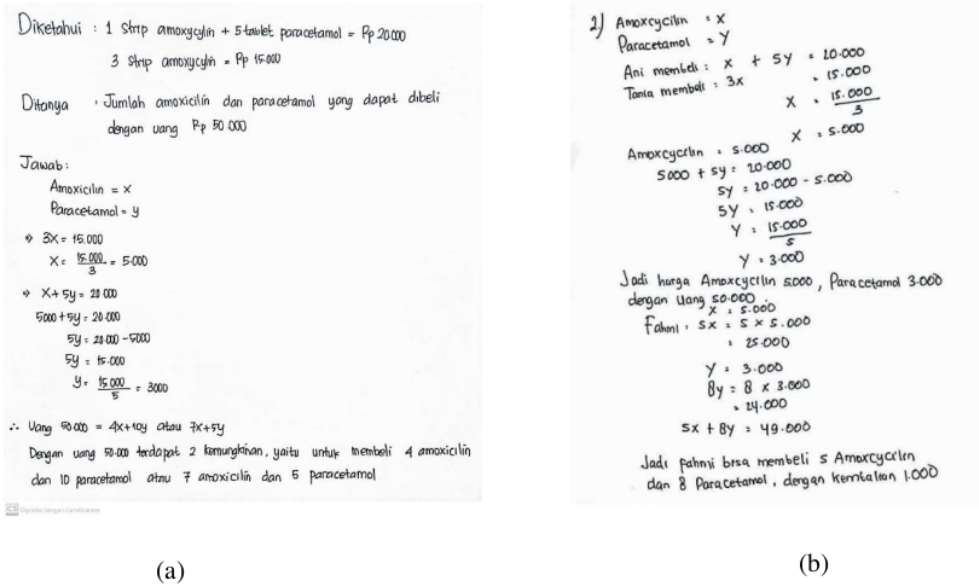 Diketahui : 1 strip amoxycylin + 5 tablet paracetamol = Rp 20.000
3 strip amoxycylin = Rp 15.000
Ditanya : Jumlah amoxicilin dan paracetamol yang dapat dibeli
dengan uang Rp 50.000
Jawab :
Amoxicilin = x
Paracetamol = y
⇒ 3x = 15.000
x = 15.000 / 3 = 5.000
⇒ x + 5y = 20.000
5000 + 5y = 20.000
5y = 20.000 - 5000
5y = 15.000
y = 15.000 / 5 = 3000
∴ Uang 50.000 = 4x + 10y atau 7x + 5y
Dengan uang 50.000 terdapat 2 kemungkinan, yaitu untuk membeli 4 amoxicilin
dan 10 paracetamol atau 7 amoxicilin dan 5 paracetamol
CS Dipindai dengan CamScanner
(a)
2) Amoxcycilin = x
Paracetamol = y
Ani membeli : x + 5y = 20.000
Tania membeli : 3x = 15.000
x = 15.000 / 3
x = 5.000
Amoxcycilin = 5.000
5000 + 5y = 20.000
5y = 20.000 - 5.000
5y = 15.000
y = 15.000 / 5
y = 3.000
Jadi harga Amoxcycilin 5.000, Paracetamol 3.000
dengan uang 50.000 :
x = 5.000
Fahmi : 5x = 5 x 5.000
= 25.000
y = 3.000
8y = 8 x 3.000
= 24.000
5x + 8y = 49.000
Jadi Fahmi bisa membeli 5 Amoxcycilin
dan 8 Paracetamol, dengan kembalian 1.000
(b)